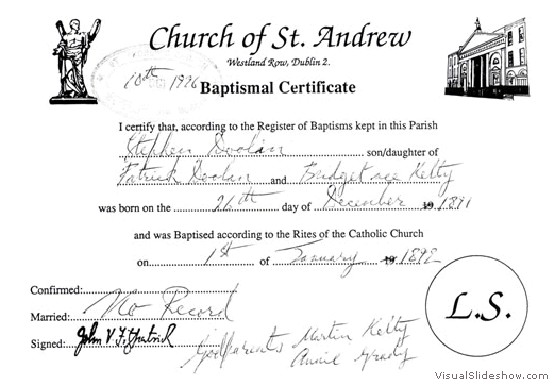 Church of St. Andrew
Westland Row, Dublin 2.
10th 1996
Baptismal Certificate
I certify that, according to the Register of Baptisms kept in this Parish
Stephen Doolan son/daughter of
Patrick Doolan and Bridget nee Kelty
was born on the 26th day of December 19 1891
and was Baptised according to the Rites of the Catholic Church
on 1st of January 19 1892
Confirmed:
Married: No Record
Signed: John V Fitzpatrick
Godparents - Martin Kelty
Annie Grady
L.S.
VisualSlideshow.com